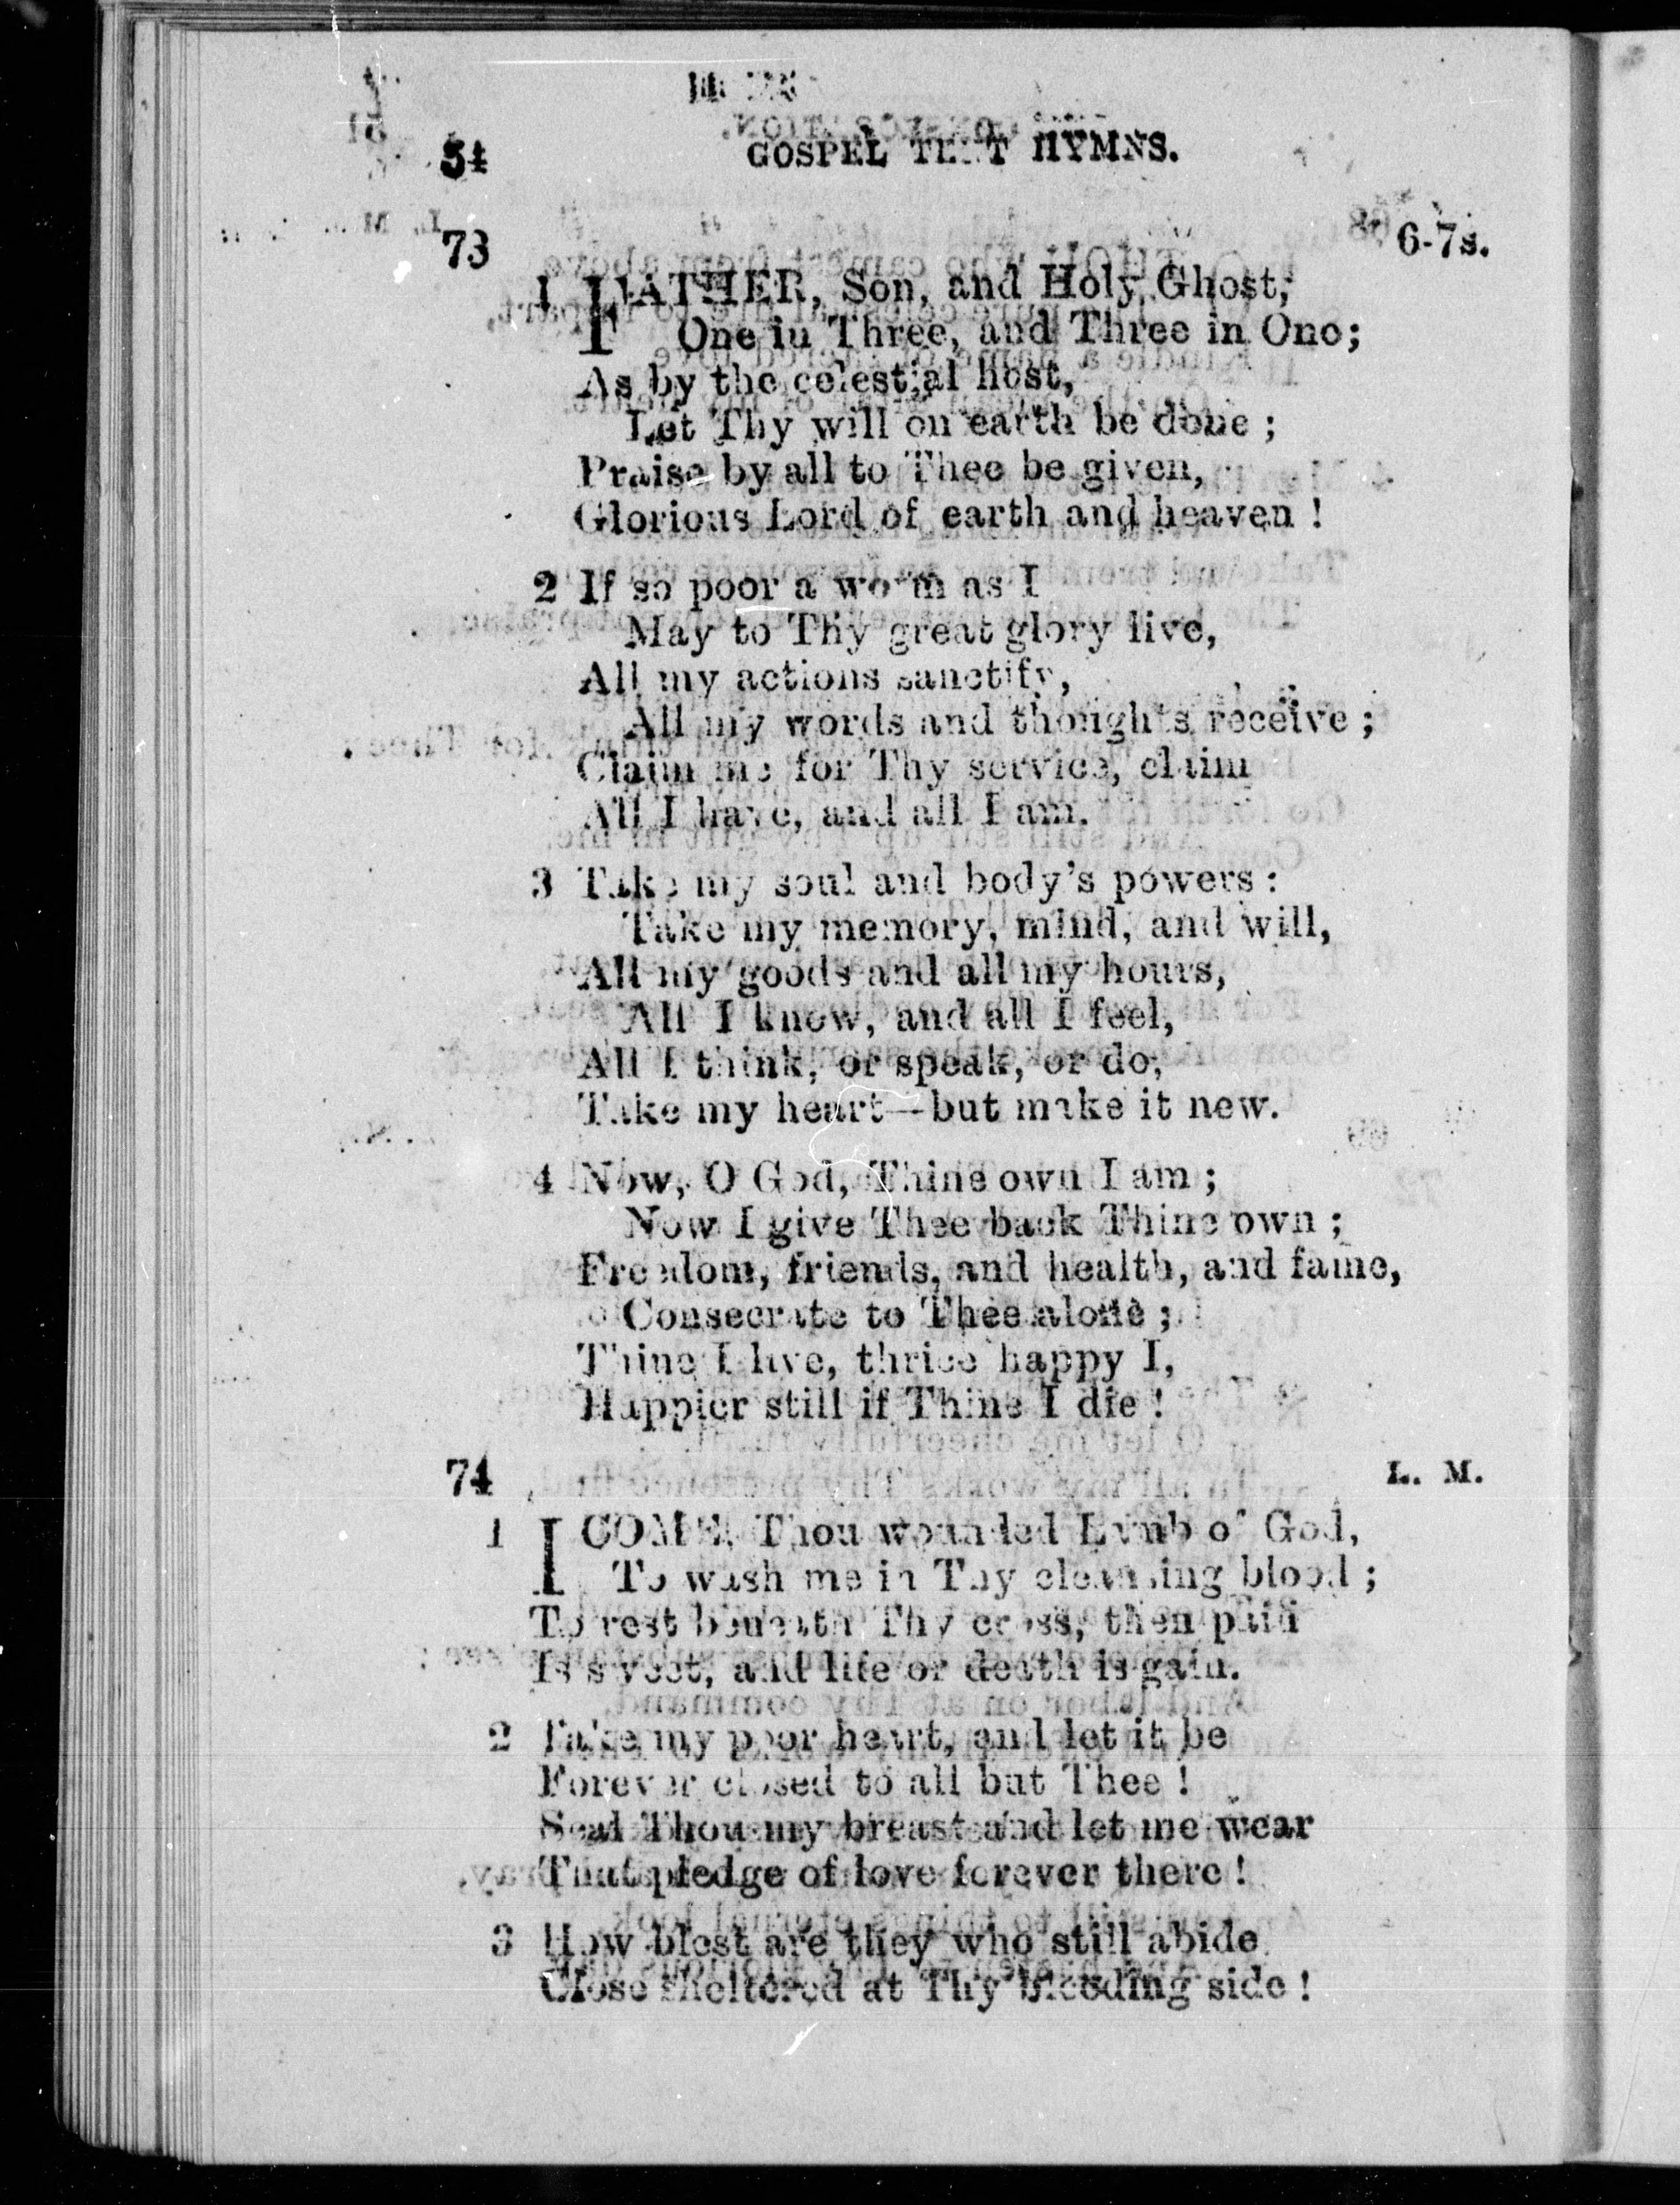 54 GOSPEL TENT HYMNS.
73 6-7s.
1 FATHER, Son, and Holy Ghost,
One in Three, and Three in One;
As by the celestial host,
Let Thy will on earth be done;
Praise by all to Thee be given,
Glorious Lord of earth and heaven!
2 If so poor a worm as I
May to Thy great glory live,
All my actions sanctify,
All my words and thoughts receive;
Claim me for Thy service, claim
All I have, and all I am.
3 Take my soul and body's powers:
Take my memory, mind, and will,
All my goods and all my hours,
All I know, and all I feel,
All I think, or speak, or do;
Take my heart—but make it new.
4 Now, O God, Thine own I am;
Now I give Thee back Thine own;
Freedom, friends, and health, and fame,
Consecrate to Thee alone;
Thine I live, thrice happy I,
Happier still if Thine I die!
74 L. M.
1 I COME, Thou wounded Lamb of God,
To wash me in Thy cleansing blood;
To rest beneath Thy cross, then pain
Is sweet, and life or death is gain.
2 Take my poor heart, and let it be
Forever closed to all but Thee!
Seal Thou my breast and let me wear
That pledge of love forever there!
3 How blest are they who still abide
Close sheltered at Thy bleeding side!